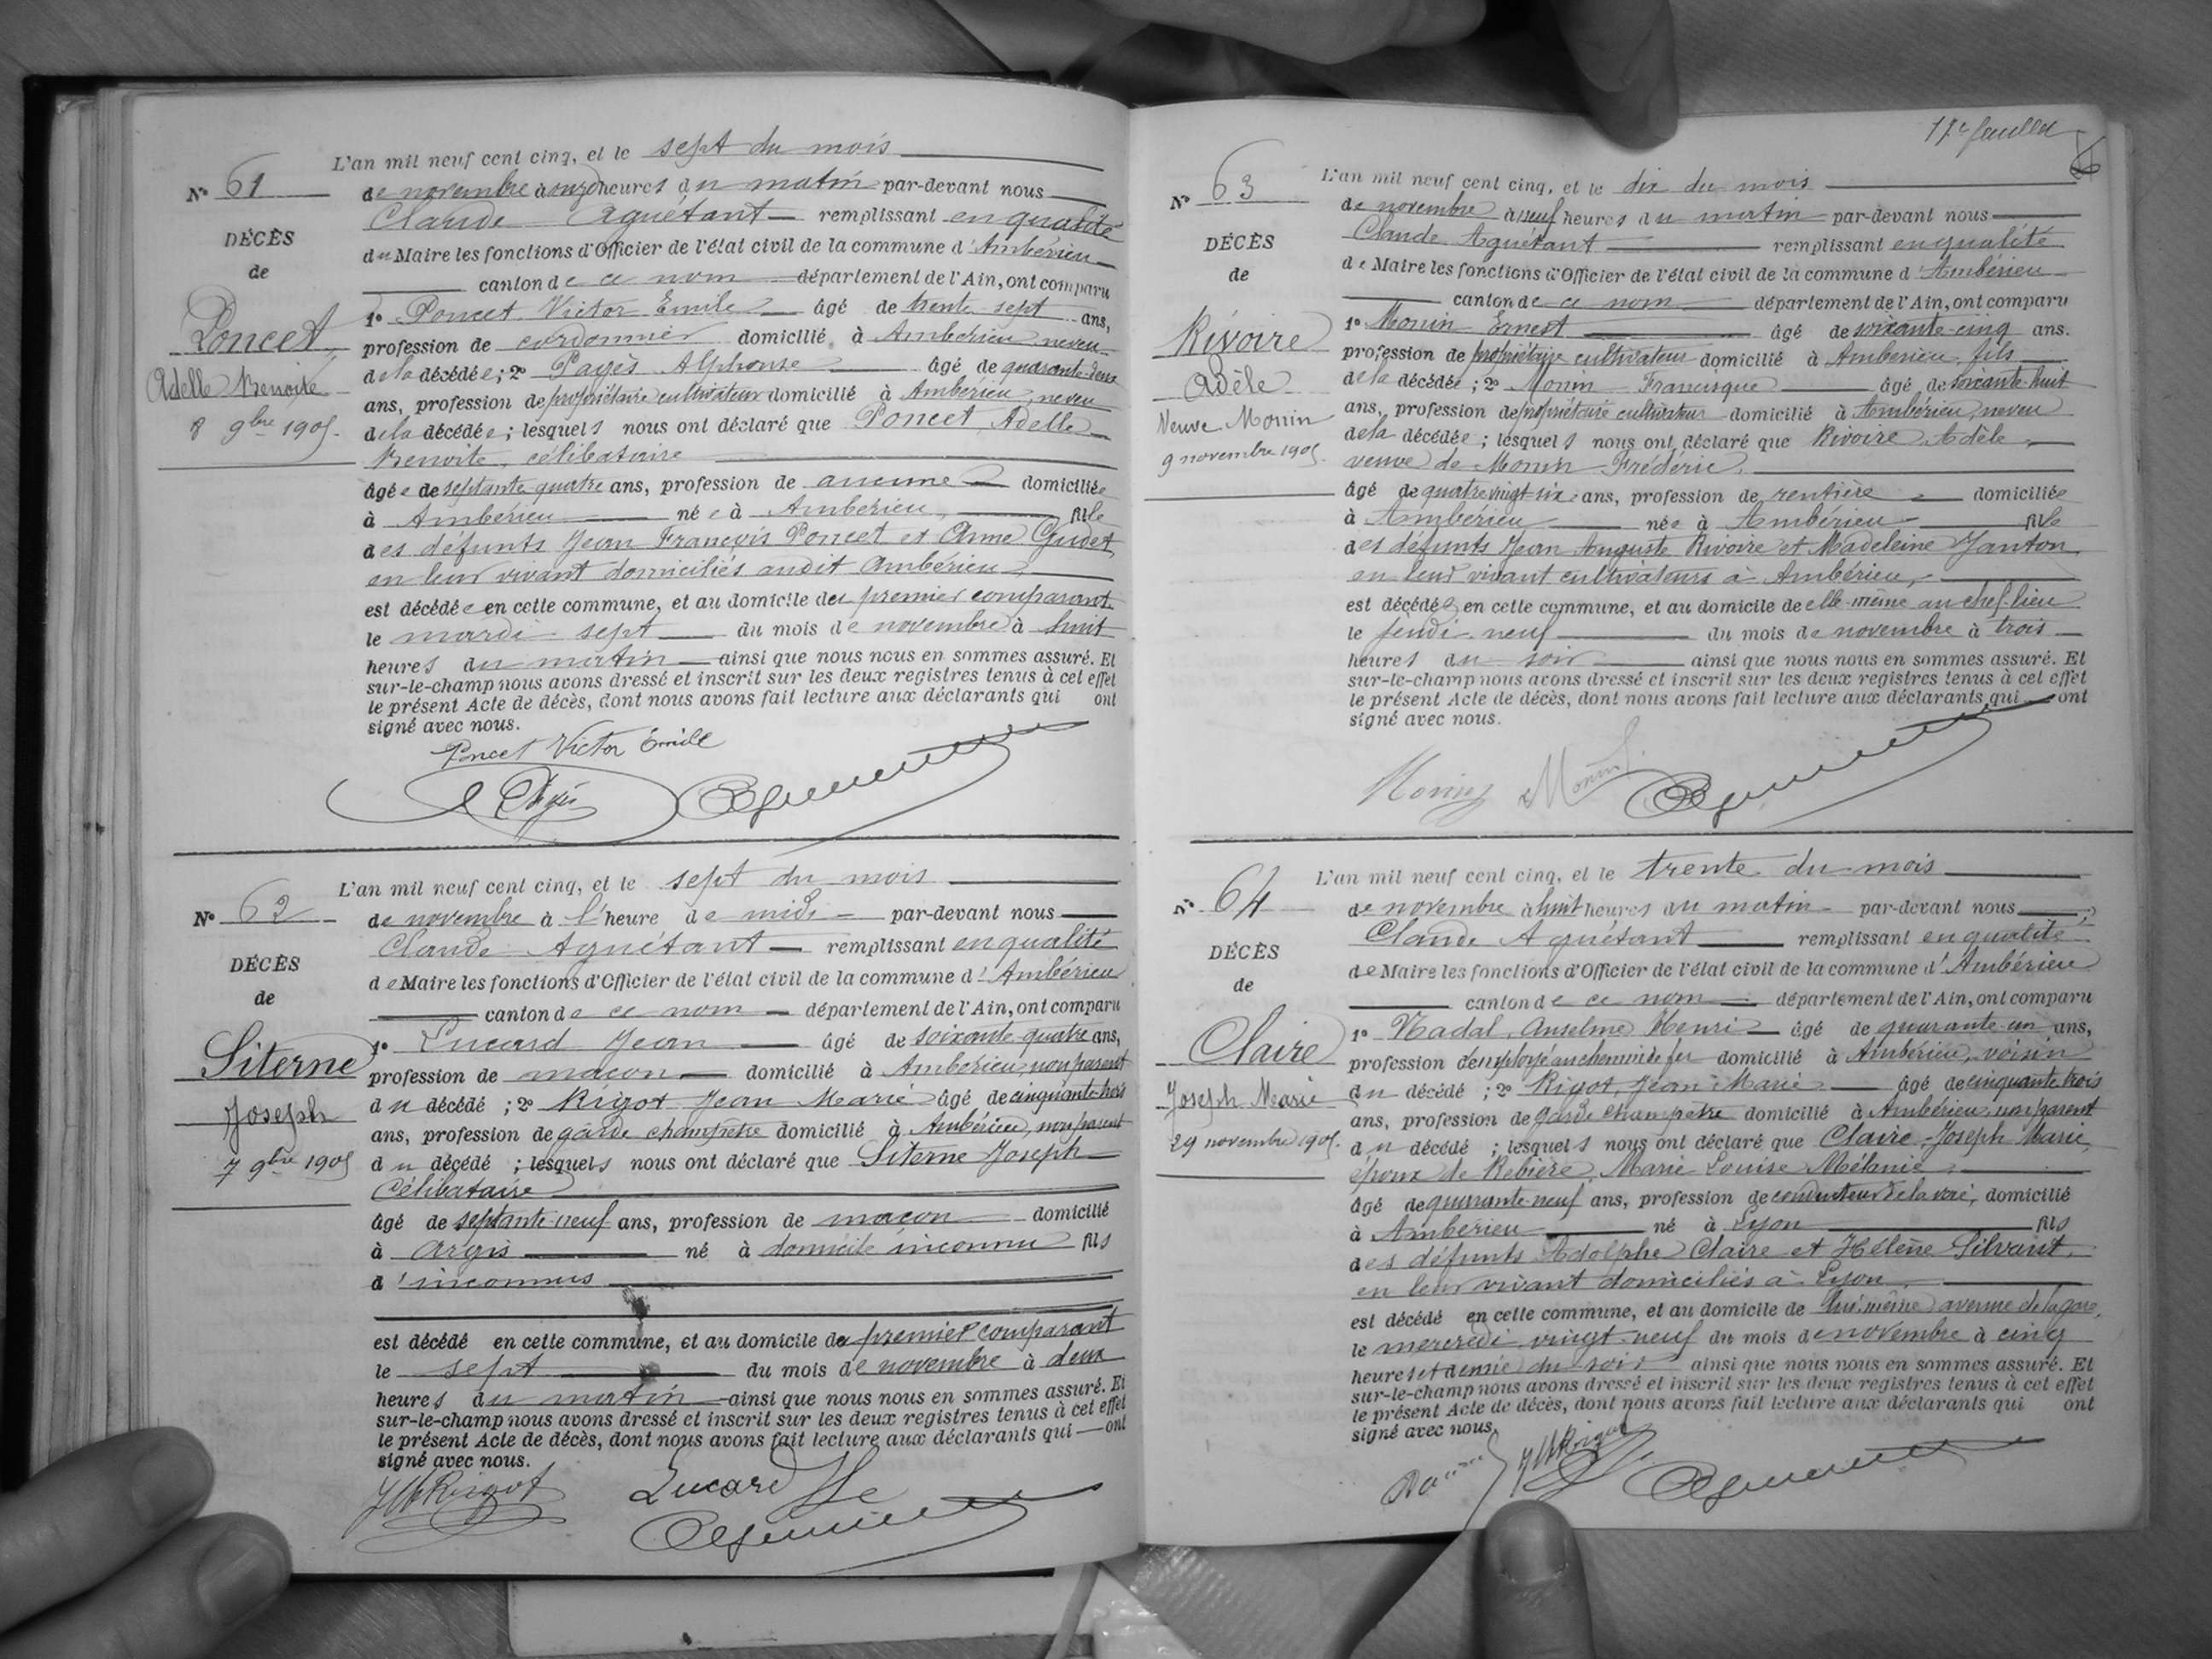 N° 61
DÉCÈS
de
Poncet
Adelle Benoite
8 9bre 1905.
L'an mil neuf cent cinq, et le sept du mois
de novembre à onze heures du matin par-devant nous
Claude Aguétant remplissant en qualité
du Maire les fonctions d'Officier de l'état civil de la commune d'Ambérieu
canton de ce nom département de l'Ain, ont comparu
1° Poncet Victor Emile âgé de trente-sept ans,
profession de cordonnier domicilié à Ambérieu neveu
de la décédée; 2° Pagès Alphonse âgé de quarante-deux
ans, profession de propriétaire cultivateur domicilié à Ambérieu, neveu
de la décédée; lesquels nous ont déclaré que Poncet Adelle
Benoite, célibataire
âgée de septante quatre ans, profession de aucune domiciliée
à Ambérieu née à Ambérieu, fille
des défunts Jean François Poncet et Anne Gudet,
en leur vivant domiciliés audit Ambérieu,
est décédée en cette commune, et au domicile du premier comparant
le mardi sept du mois de novembre à huit
heures du matin ainsi que nous nous en sommes assuré. Et
sur-le-champ nous avons dressé et inscrit sur les deux registres tenus à cet effet
le présent Acte de décès, dont nous avons fait lecture aux déclarants qui ont
signé avec nous.
Poncet Victor Émile
N° 62
DÉCÈS
de
Siterne
Joseph
7 9bre 1905
L'an mil neuf cent cinq, et le sept du mois
de novembre à l'heure de midi par-devant nous
Claude Aguétant remplissant en qualité
de Maire les fonctions d'Officier de l'état civil de la commune d'Ambérieu
canton de ce nom département de l'Ain, ont comparu
1° Lucard Jean âgé de soixante-quatre ans,
profession de maçon domicilié à Ambérieu, non parent
du décédé; 2° Rigot Jean Marie âgé de cinquante-trois
ans, profession de garde champêtre domicilié à Ambérieu, non parent
du décédé; lesquels nous ont déclaré que Siterne Joseph
Célibataire
âgé de septante-neuf ans, profession de maçon domicilié
à Argis né à domicile inconnu fils
d'inconnus
est décédé en cette commune, et au domicile du premier comparant
le sept du mois de novembre à deux
heures du matin ainsi que nous nous en sommes assuré. Et
sur-le-champ nous avons dressé et inscrit sur les deux registres tenus à cet effet
le présent Acte de décès, dont nous avons fait lecture aux déclarants qui ont
signé avec nous.
JM Rigot Lucard
17e feuillet
N° 63
DÉCÈS
de
Rivoire
Adèle
Veuve Monin
9 novembre 1905.
L'an mil neuf cent cinq, et le dix du mois
de novembre à neuf heures du matin par-devant nous
Claude Aguétant remplissant en qualité
de Maire les fonctions d'Officier de l'état civil de la commune d'Ambérieu
canton de ce nom département de l'Ain, ont comparu
1° Monin Ernest âgé de soixante-cinq ans.
profession de propriétaire cultivateur domicilié à Ambérieu, fils
de la décédée; 2° Monin Francisque âgé de soixante-huit
ans, profession de propriétaire cultivateur domicilié à Ambérieu, neveu
de la décédée; lesquels nous ont déclaré que Rivoire Adèle,
veuve de Monin Frédéric.
âgé de quatre vingt-six ans, profession de rentière domiciliée
à Ambérieu née à Ambérieu fille
des défunts Jean Auguste Rivoire et Madeleine Janton,
en leur vivant cultivateurs à Ambérieu,
est décédée en cette commune, et au domicile de elle-même au chef-lieu
le jeudi neuf du mois de novembre à trois
heures du soir ainsi que nous nous en sommes assuré. Et
sur-le-champ nous avons dressé et inscrit sur les deux registres tenus à cet effet
le présent Acte de décès, dont nous avons fait lecture aux déclarants qui ont
signé avec nous.
Monin Monin
N° 64
DÉCÈS
de
Claire
Joseph Marie
29 novembre 1905.
L'an mil neuf cent cinq, et le trente du mois
de novembre à huit heures du matin par-devant nous
Claude Aguétant remplissant en qualité
de Maire les fonctions d'Officier de l'état civil de la commune d'Ambérieu
canton de ce nom département de l'Ain, ont comparu
1° Nadal Anselme Henri âgé de quarante-un ans,
profession d'employé au chemin de fer domicilié à Ambérieu, voisin
du décédé; 2° Rigot Jean Marie âgé de cinquante-trois
ans, profession de garde champêtre domicilié à Ambérieu, non parent
du décédé; lesquels nous ont déclaré que Claire Joseph Marie,
époux de Rebière Marie Louise Mélanie
âgé de quarante-neuf ans, profession de conducteur de la voie, domicilié
à Ambérieu né à Lyon fils
des défunts Adolphe Claire et Hélène Silvant,
en leur vivant domiciliés à Lyon
est décédé en cette commune, et au domicile de lui-même avenue de la gare,
le mercredi vingt-neuf du mois de novembre à cinq
heures et demie du soir ainsi que nous nous en sommes assuré. Et
sur-le-champ nous avons dressé et inscrit sur les deux registres tenus à cet effet
le présent Acte de décès, dont nous avons fait lecture aux déclarants qui ont
signé avec nous.
JM Rigot